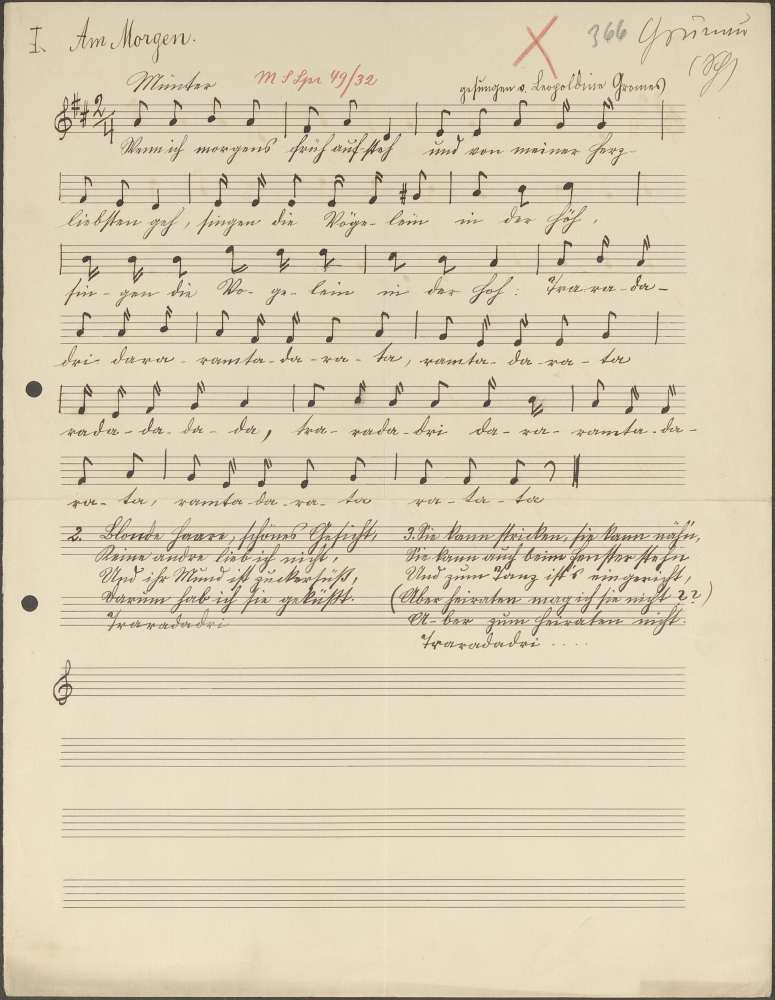 I. Am Morgen.
366 Grünau
(Sch)
Munter M S Spr 49/32 gesungen v. Leopoldine Gromes)
2/4
Wenn ich morgens früh aufsteh und von meiner Herz-
liebsten geh, singen die Vöge-lein in der Höh,
sin-gen die Vö-ge-lein in der Höh. Tra ra-da-
dri dara-ramta-da-ra-ta, ramta-da-ra-ta
rada-da-da-da, tra-rada-dri da-ra-ramta-da-
ra-ta, ramta-da-ra-ta ra-ta-ta
2. Blonde Haare, schönes Gesicht,
Keine andre lieb ich nicht,
Und ihr Mund ist zuckersüß,
Darum hab ich sie geküßt.
Traradadri
3. Sie kann stricken, sie kann nähn,
Sie kann auch beim Fenster stehn
Und zum Tanz ist's eingericht,
(Aber heiraten mag ich sie nicht ??)
A-ber zum heiraten nicht.
Traradadri ....